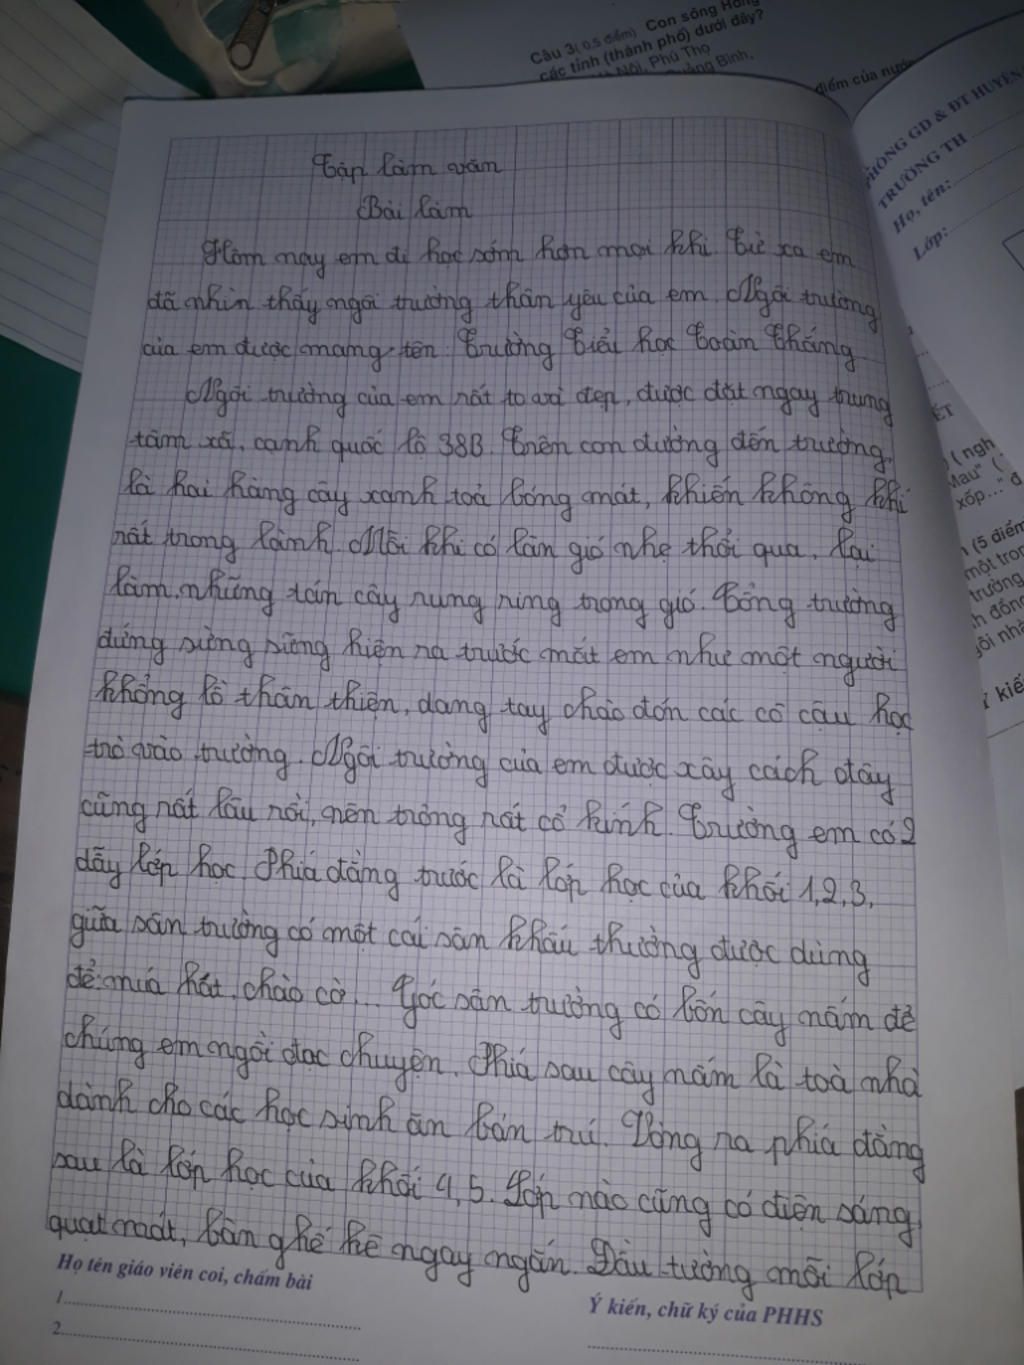 Câu 3( 0,5 điểm) Con sông Hồng
các tỉnh (thành phố) dưới đây?
Nội, Phú Thọ
Quảng Bình,
điểm của nước
PHÒNG GD & ĐT HUYỆN
TRƯỜNG TH
Họ, tên:
Lớp:
Tập làm văn
Bài làm
Hôm nay em đi học sớm hơn mọi khi. Từ xa em
đã nhìn thấy ngôi trường thân yêu của em. Ngôi trường
của em được mang tên Trường Tiểu học Toàn Thắng
Ngôi trường của em rất to và đẹp, được đặt ngay trung
tâm xã, cạnh quốc lộ 38B. Trên con đường đến trường,
là hai hàng cây xanh toả bóng mát, khiến không khí
rất trong lành. Mỗi khi có làn gió nhẹ thổi qua, lại
làm những tán cây rung ring trong gió. Cổng trường
đứng sừng sững hiện ra trước mắt em như một người
khổng lồ thân thiện, dang tay chào đón các cô cậu học
trò vào trường. Ngôi trường của em được xây cách đây
cũng rất lâu rồi, nên trông rất cổ kính. Trường em có 2
dãy lớp học. Phiá đằng trước là lớp học của khối 1,2,3,
giữa sân trường có một cái sân khấu thường được dùng
để múa hát, chào cờ... Góc sân trường có bốn cây nấm để
chúng em ngồi đọc chuyện. Phiá sau cây nấm là toà nhà
dành cho các học sinh ăn bán trú. Vòng ra phiá đằng
sau là lớp học của khối 4,5. Lớp nào cũng có điện sáng,
quạt mát, bàn ghế kê ngay ngắn. Đầu tường mỗi lớp
Họ tên giáo viên coi, chấm bài
1
2
Ý kiến, chữ ký của PHHS
( ngh
Mau" (
xốp..." đ
(5 điểm
một tron
trường,
h đồng
kiế